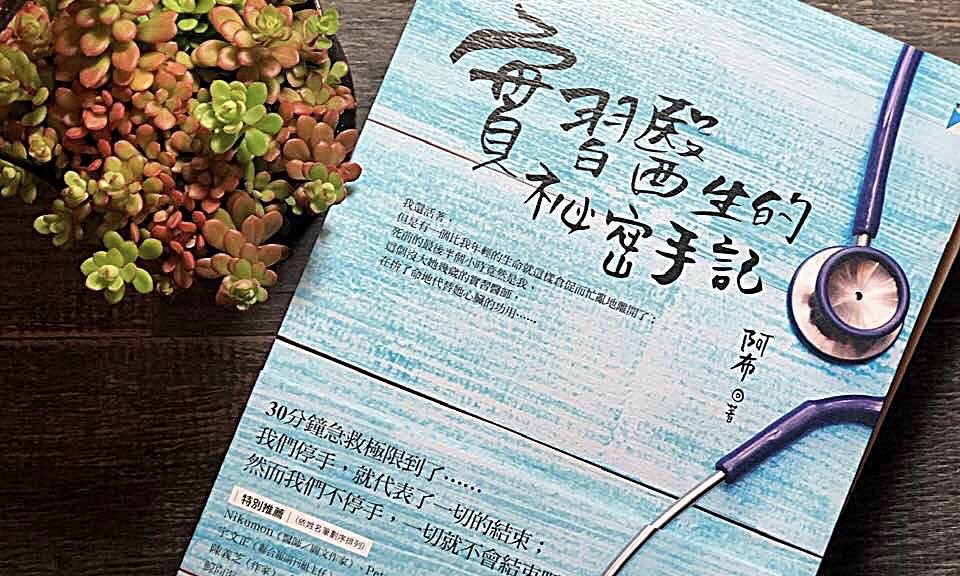 實習醫生的
祕密手記
我還活著，
但是有一個比我年輕的生命就這樣倉促而忙亂地離開了；
死前的最後半個小時竟然是我、
這個沒大她幾歲的實習醫師，
在拚了命地代替她心臟的功用……
阿布◎著
30分鐘急救極限到了……
我們停手，就代表了一切的結束；
然而我們不停手，一切就不會結束
特別推薦 (依姓名筆劃序排列)
Nikumon (醫師／圖文作家)、Pet
宇文正 (聯合報副刊組主任)
陳義芝 (作家)